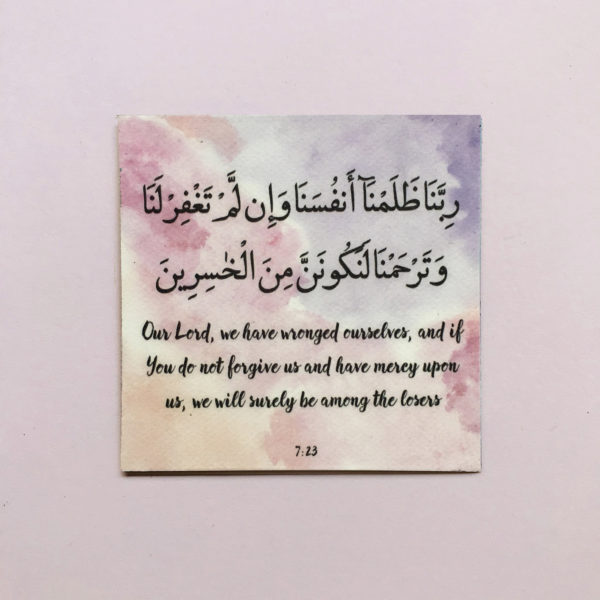 رَبَّنَا ظَلَمْنَآ أَنفُسَنَا وَإِن لَّمْ تَغْفِرْ لَنَا
وَتَرْحَمْنَا لَنَكُونَنَّ مِنَ الْخٰسِرِينَ
Our Lord, we have wronged ourselves, and if
You do not forgive us and have mercy upon
us, we will surely be among the losers
7:23